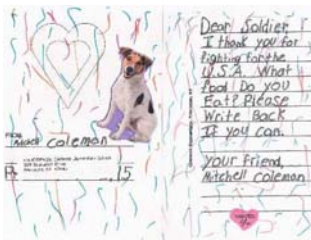 FROM:
Mitchell Coleman
15
Dear Soldier,
I thank you for
fighting for the
U.S.A. What
food Do you
Eat? Please
Write Back
If you can.
Your friend,
Mitchell Coleman